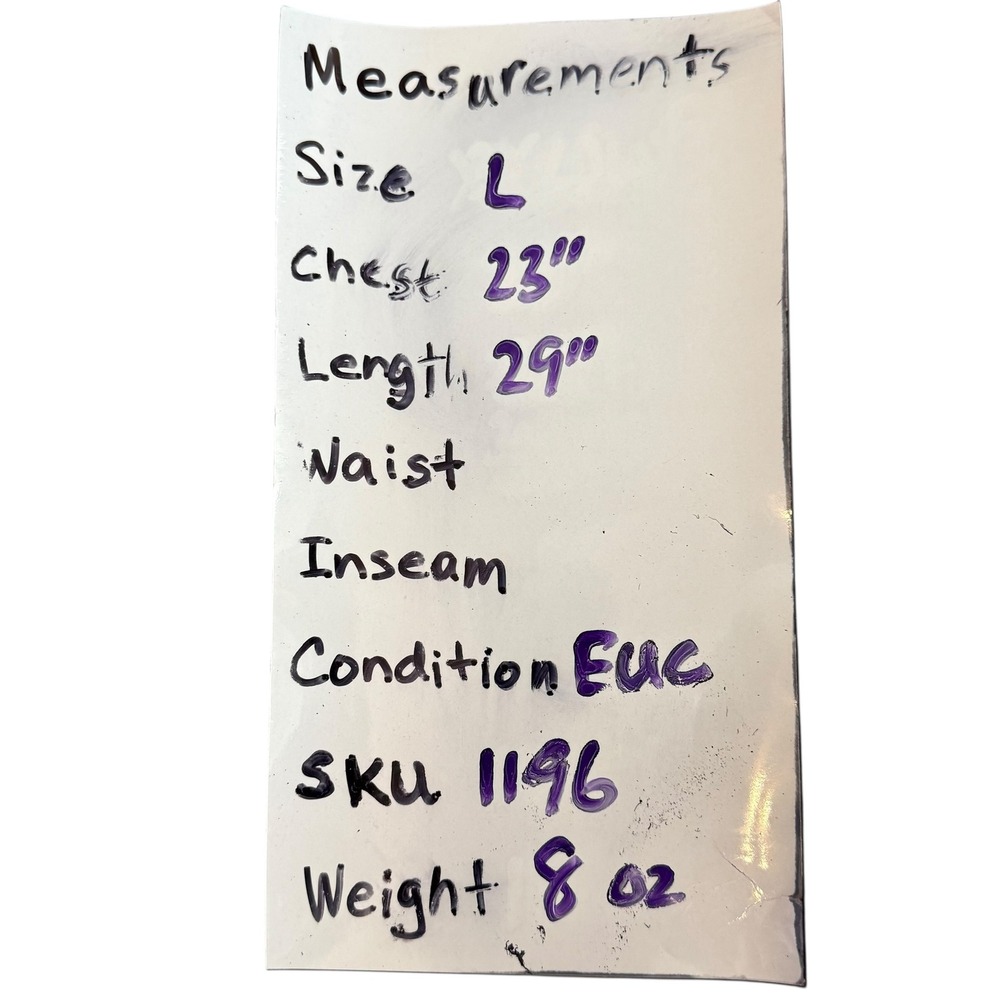 Measurements
Size L
Chest 23"
Length 29"
Waist
Inseam
Condition EUC
SKU 1196
Weight 8 oz